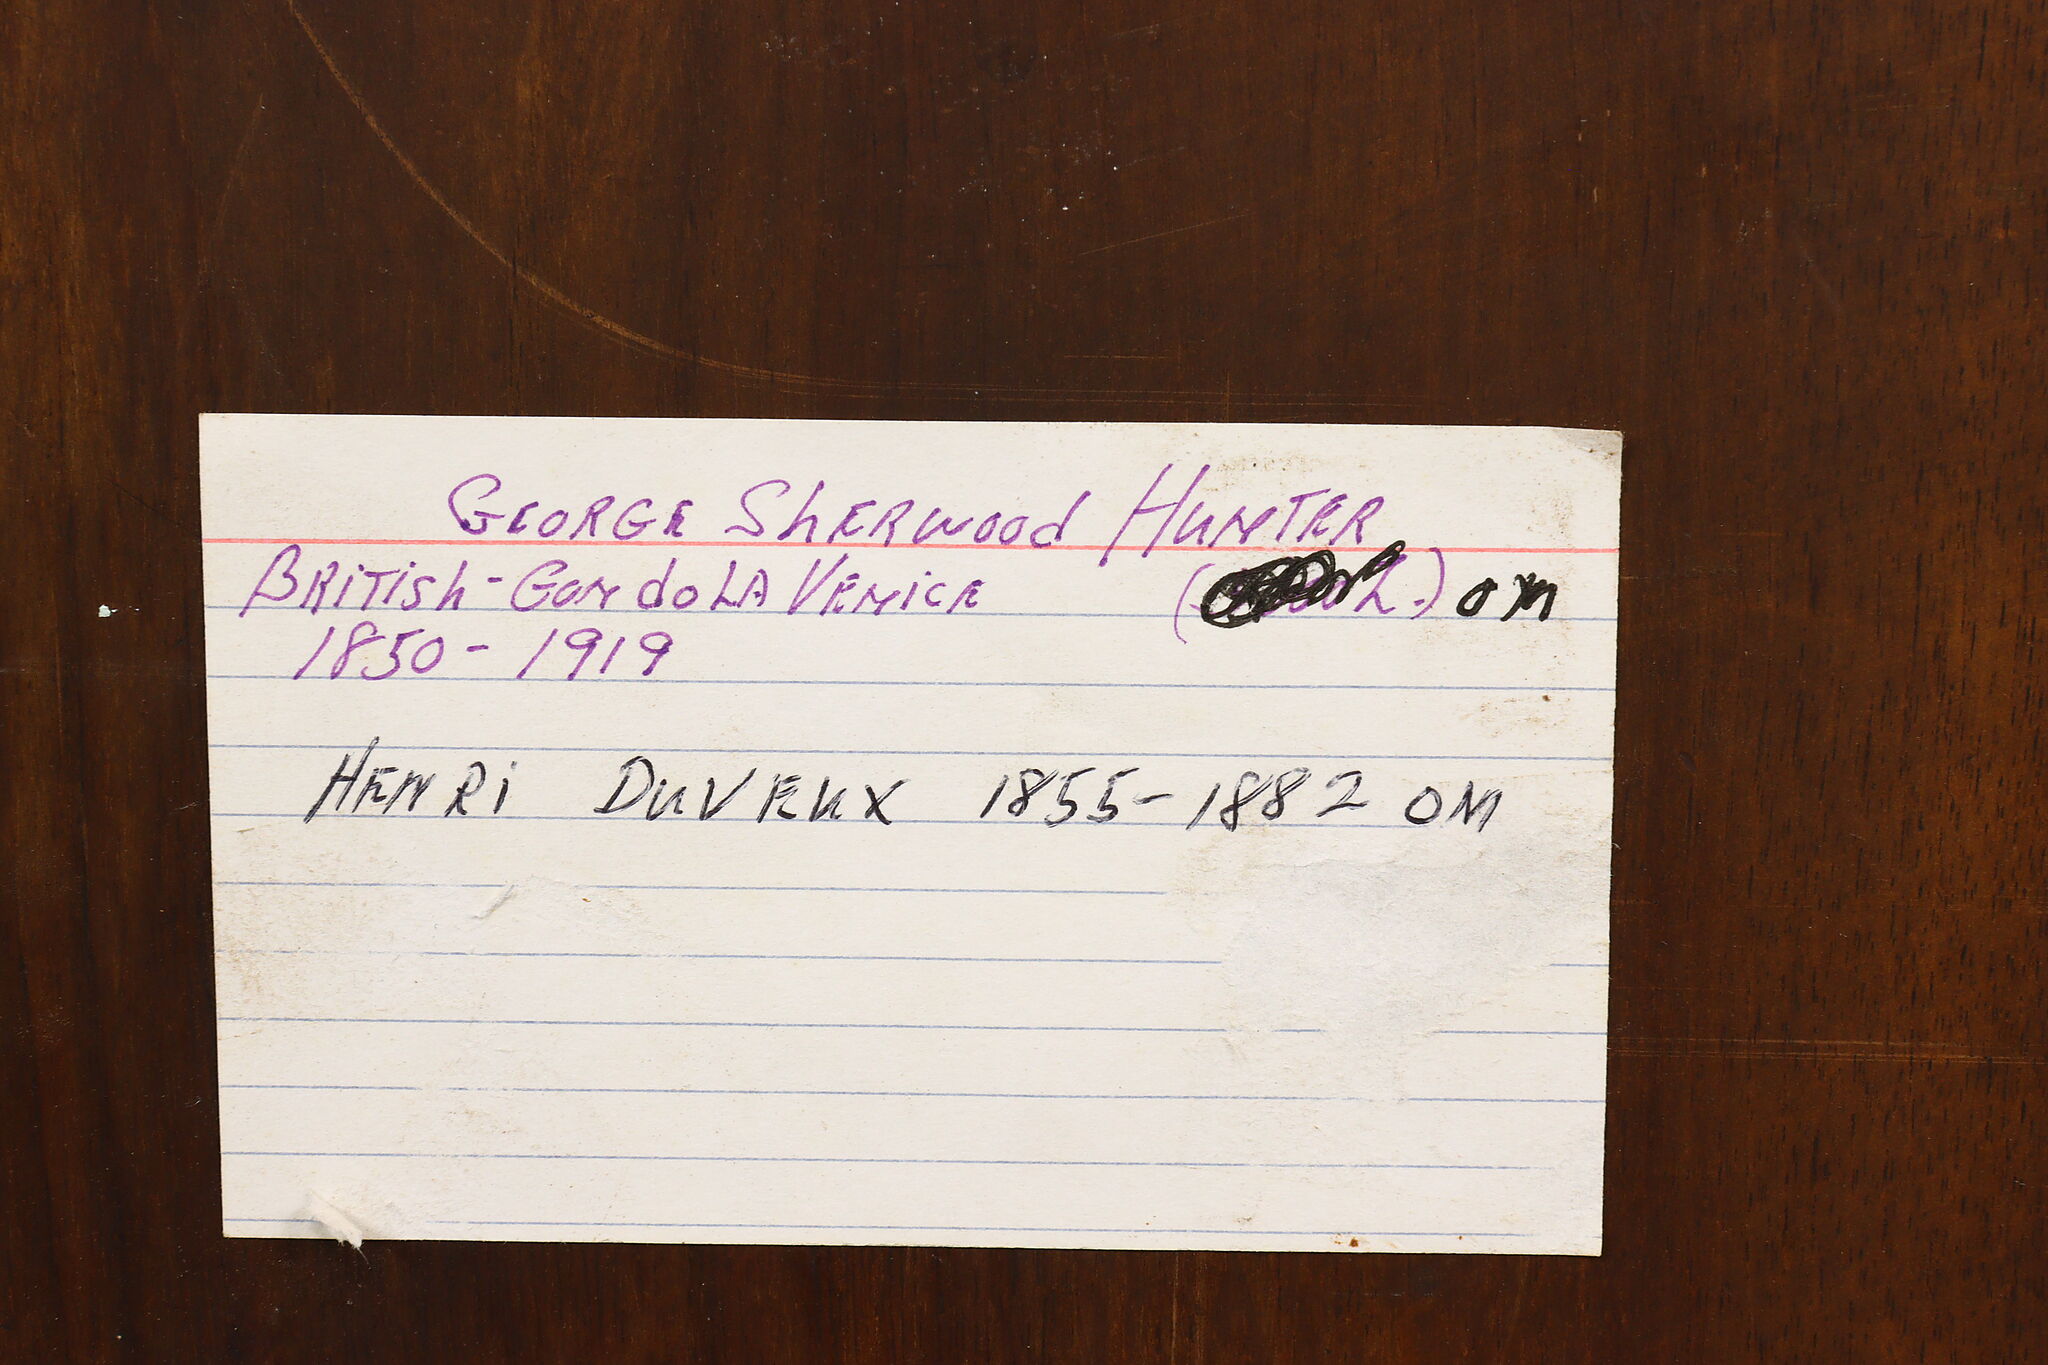 GEORGE ShERWOOd HUNTER
BRiTish-GONdoLA VENiCE ( .) OM
1850-1919
HENRi DUVEUX 1855-1882 OM